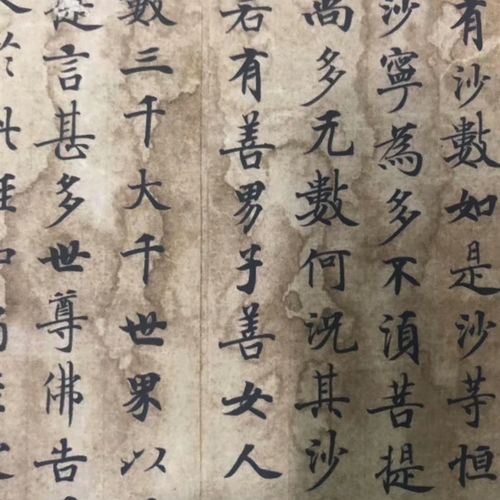 有沙數如是沙䓁恒
沙寧為多不湏菩提
尚多无數何況其沙
若有善男子善女人
數三千大千世界以
提言甚多世尊佛告